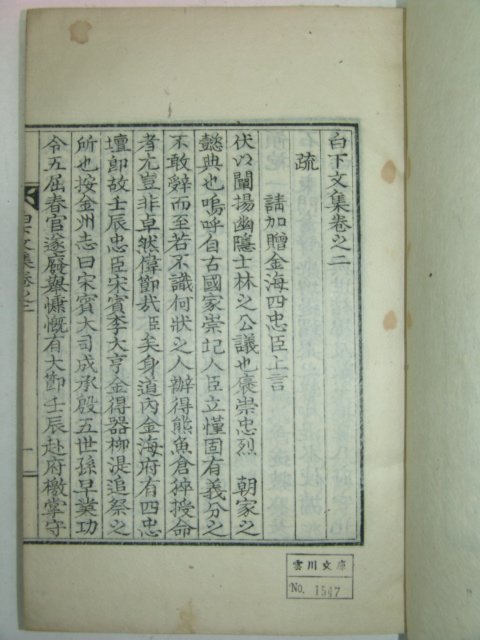 白下文集卷之二
疏
請加贈金海四忠臣上言
伏以闡揚幽隱士林之公議也褒崇忠烈 朝家之
懿典也嗚呼自古國家崇記人臣立慬固有義分之
不敢辭而至若不識何狀之人辦得熊魚倉猝授命
者尤豈非卓然偉節哉臣矣身道內金海府有四忠
壇卽故壬辰忠臣宋賓李大亨金得器柳湜追祭之
所也按金州志曰宋賓大司成承殷五世孫早業功
令五屈春官遂廢擧慷慨有大節壬辰赴府檄掌守
白下文集卷之二
一
雲川文庫
No. 1547